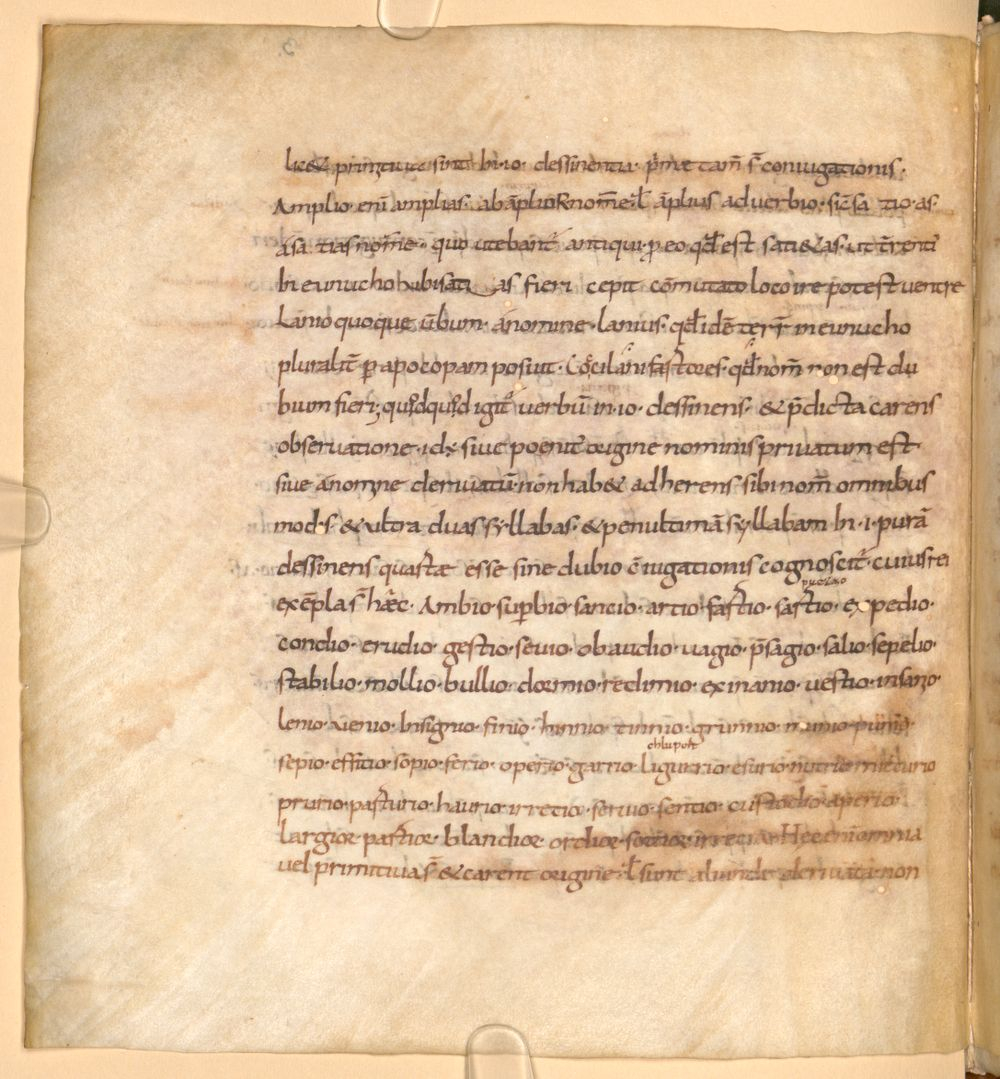 lic& primitiua sint in ·io· dessinentia· p̄me tam̄ s̄ coniugationis·
Amplio· enī amplias· ab āplioR nom̄e· ł āplius aduerbio· sic̄ sa tio· as·
āsa tias nom̄e· quo utebant̄ antiqui· p eo qd̄ est sati&as· ut t̄renti
In eunucho ubi sati as fieri cepit com̄utato loco ire potest uentre
Lanio quoque ūbum· ānomine· lanius· qd̄ idē teŕr̄ in eunucho
pluralit̄ p apocopam posuit· Co᷑ci lani fartores· qd̄ nom̄ non est du
bium fieri; quod quod igit᷑ uerbū in ·io· dessinens· & p̄dicta carens
observatione· id ÷ siue poenit᷑ origine nominis priuatum est
siue ānomine deriuatū· non hab& adherens sibi nom̄ omnibus
mod·s· & ultra duas syllabas· & penultimā syllabam in ·i· purā
dessinens quartæ esse sine dubio c̄iugationis cognoscit᷑· cuius rei
exēpla s̄ hæc· Ambio· supbio· sancio· artio· fartio· sartio· expedio·
condio· erudio· gestio· seuio· obaudio· uagio· p̄sagio· salio· sepelio·
stabilio· mollio· bullio· dormio· redimio· exinanio· uestio· insanio·
lenio· uenio· Insignio· finio· hinnio· tinnio· grunnio· munio· punio·
chlupon
sepio· effutio· sopio· ferio· operio· garrio· Ligurrio· esurio· nutrio· micturio
prurio· parturio· haurio· irretio· seruio· sentio· custodio· aperio·
Largior· partior· blandior· ordior· sortior· Hec enī omnia
uel primitiua s̄ & carent origine· ł sunt aliunde deriuata· non